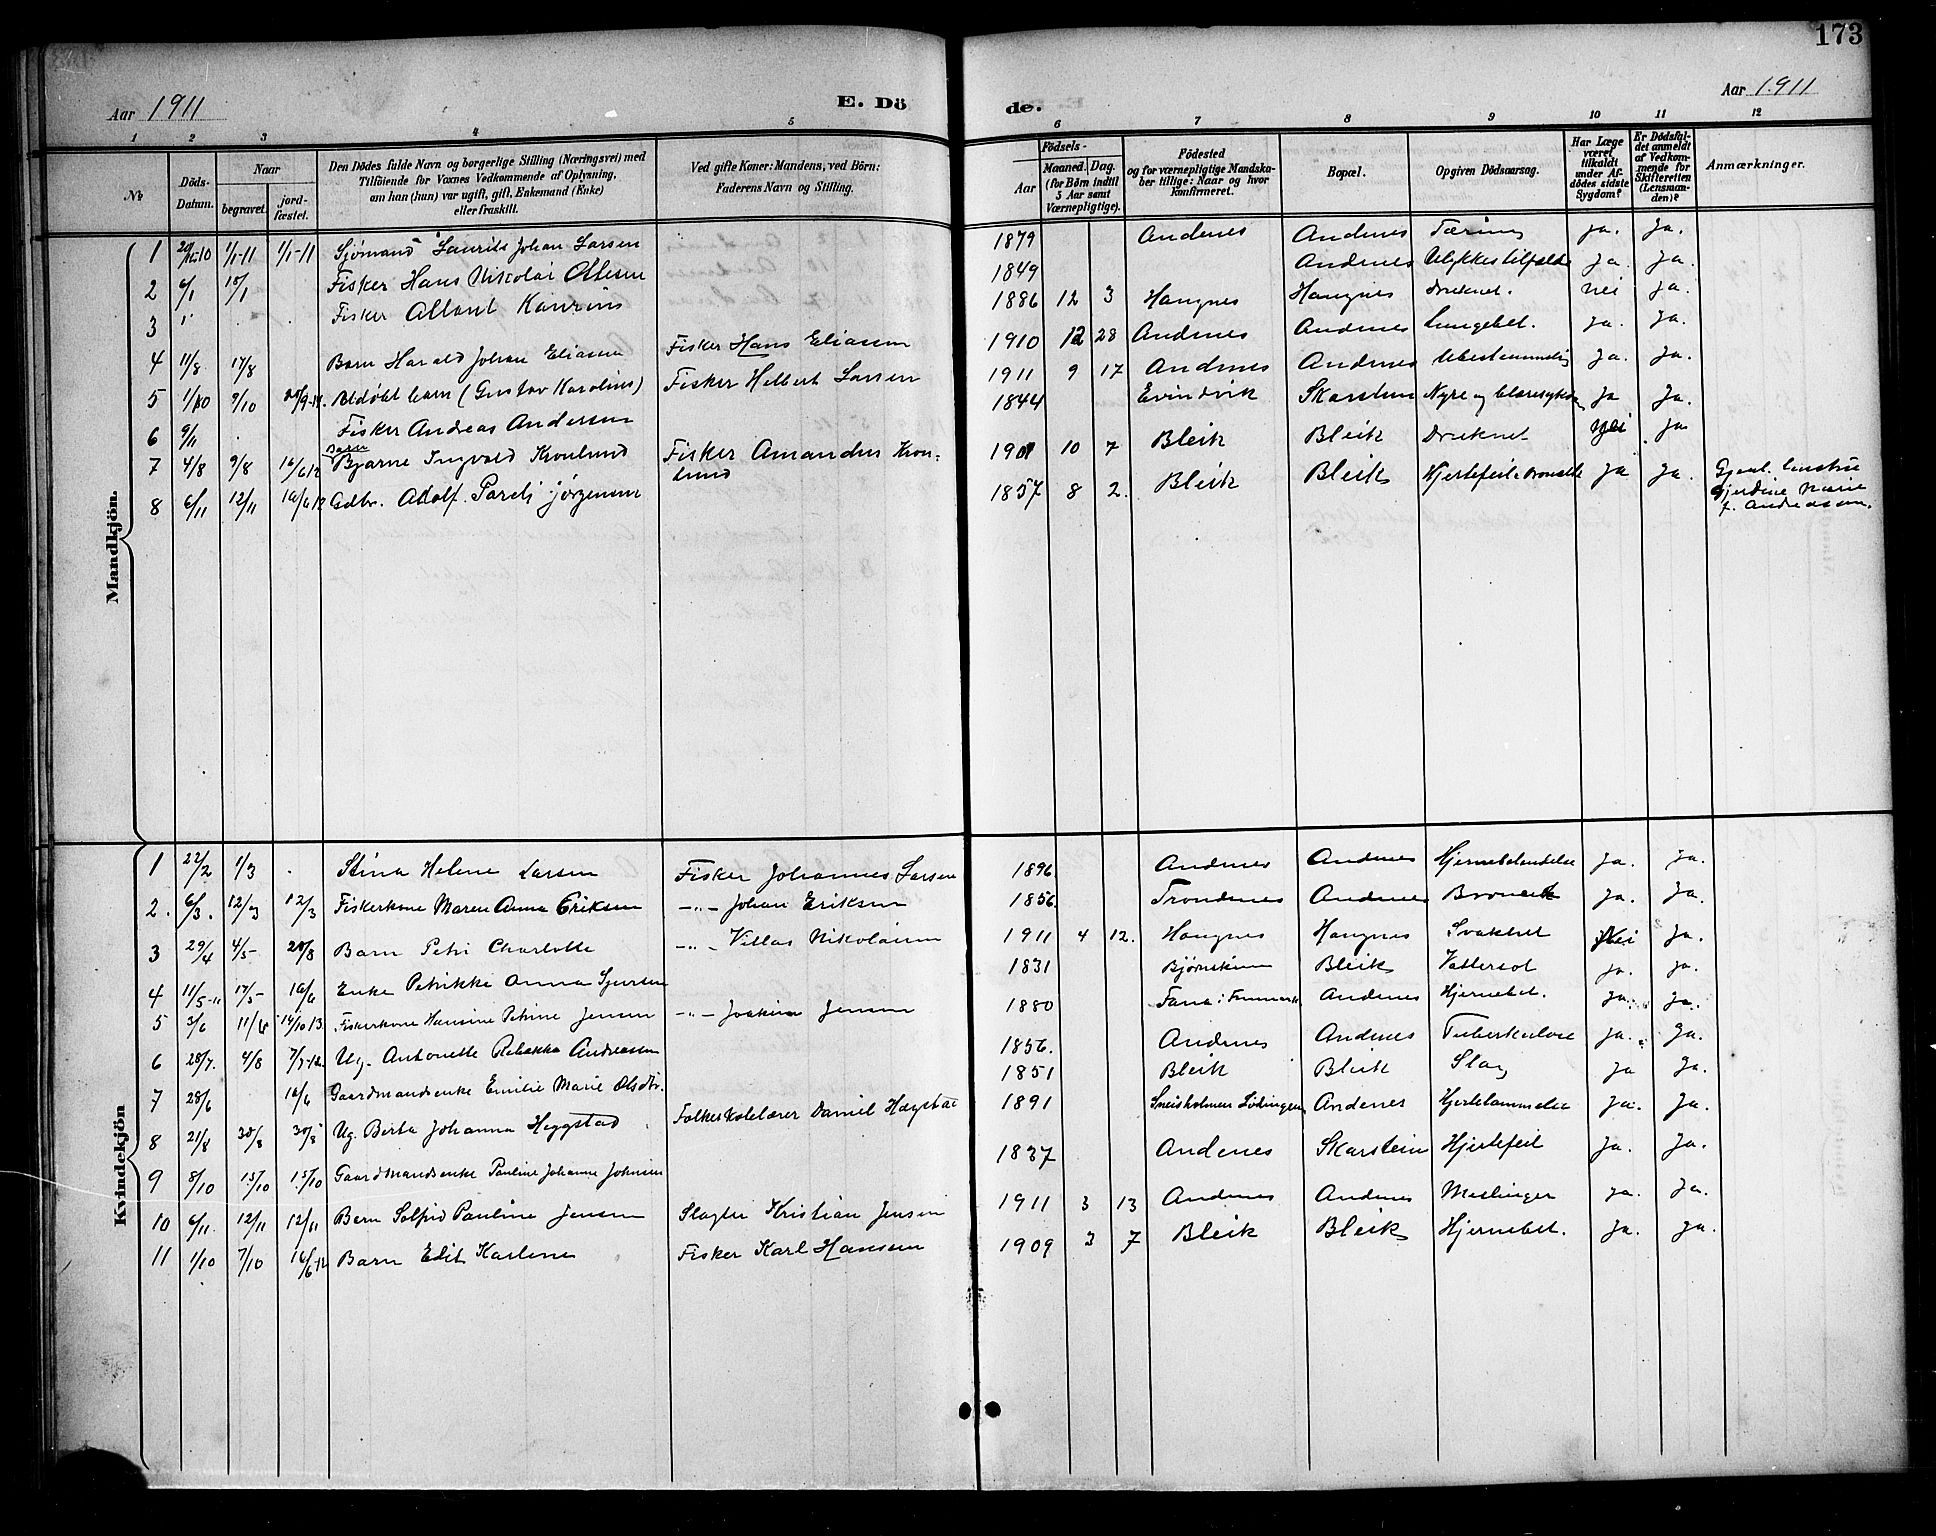 173
Aar 1911
E. Dö
de.
Aar 1911
1 2 3 4 5 6 7 8 9 10 11 12
№
Döds-Datum.
Naar
begravet.
jord-fæstet.
Den Dödes fulde Navn og borgerlige Stilling (Næringsvei) med
Tilföiende for Voxnes Vedkommende af Oplysning,
om han (hun) var ugift, gift, Enkemand (Enke)
eller fraskilt.
Ved gifte Koner: Mandens, ved Börn:
Faderens Navn og Stilling.
Födsels-
Aar
Maaned. Dag.
(for Börn indtil
5 Aar samt
Værnepligtige).
Födested
og for værnepligtige Mandska-
ber tillige: Naar og hvor
konfirmeret.
Bopæl.
Opgiven Dödsaarsag.
Har Læge
været
tilkaldt
under Af-
dödes sidste
Sygdom?
Er Dödsfal-
det anmeldt
af Vedkom-
mende for
Skifteretten
(Lensman-
den)?
Anmærkninger.
Mandkjön.
1 1/1-11 1/1-11 Sjömand Laurits Johan Larsen 1879 Andenes Andenes Tæring ja. Ja.
2 6/1 18/1 Fisker Hans Nikolai Ottesen 1849 Andenes Ulykkestilfælde Ja. Ja.
3 Fisker 1886 12 3 Haugnes Haugnes Druknet. nei ja.
4 11/8 17/8 Barn Harald Johan Eliasen Fisker Hans Eliasen 1910 12 28 Andenes Andenes Lungebet. ja. Ja.
5 1/10 9/10 Uldöbt barn (Gustav Karolius) Fisker Helbert Larsen 1911 9 17 Andenes Andenes Ja. Ja.
6 9/11 Fisker Andreas Andersen 1844 Evindvik Skarstein Nyre og blæresykdom Ja Ja.
7 4/8 9/8 16/6 12 Barn Bjarne Ingvald Kronlund Fisker Amandus Kron-
lund 1901 10 7 Bleik Bleik Druknet Nei Ja
8 6/11 12/11 16/6 12 Gdbr. Adolf Pareli Jörgensen 1857 8 2. Bleik Bleik Hjertefeil & Bronchit Ja Ja. Gjenl. Enstrue
Gjerdine Marie
f. Andreassen.
Kvindekjön
1 22/2 1/3 Stina Helene Larsen Fisker Johannes Larsen 1896 Andenes Andenes Hjernebetendelse ja. ja.
2. 6/3. 12/3 12/3 Fiskerkone Maren Anna Eriksen -„- Johan Eriksen 1856. Trondenes Andenes Bronchit Ja. Ja.
3 29/4 4/5- 20/8 Barn Petri Charlotte -„- Villas Nikolaisen 1911 4 12. Haugnes Haugnes Svakhet Nei Ja.
4 11/5-11 17/5- 16/6 Enke Petrikke Anna Sjursen 1831 Bjørnskinn Bleik Vattersot ja. ja.
5 3/6 11/6 14/10 13. Fiskerkone Hansine Petrine Jensen -„- Joakim Jensen 1880 Tana i Finmark Andenes Hjernebet. Ja. ja.
6 28/7. 4/8 7/7-12. Ug. Antonette Rebekka Andreassen 1856. Andenes Andenes Tuberkulose Ja. Ja.
7 28/6 16/6 Gaardmandsenke Emilie Marie Olsdtr. 1851 Bleik Bleik Slag Ja Ja.
8 21/8 30/8 30/8 Ug. Berta Johanna Heggstad Folkeskolelærer Daniel Hegstad 1891 Sneisholmen Lödingen Andenes Hjertelammelse Ja. Ja.
9 8/10 15/10 15/10 Gaardmandsenke Pauline Johanne Johnsen 1837 Andenes Skarstein Hjertefeil Ja. Ja.
10 6/11. 12/11 12/11 Barn Solfrid Pauline Jensen Slagter Kristian Jensen 1911 3 13 Andenes Andenes Meslinger ja. Ja.
11 1/10 7/10 16/6-12 Barn Edit Karlene Fisker Karl Hansen 1909 3 7 Bleik Bleik Hjernebet. Ja. Ja.